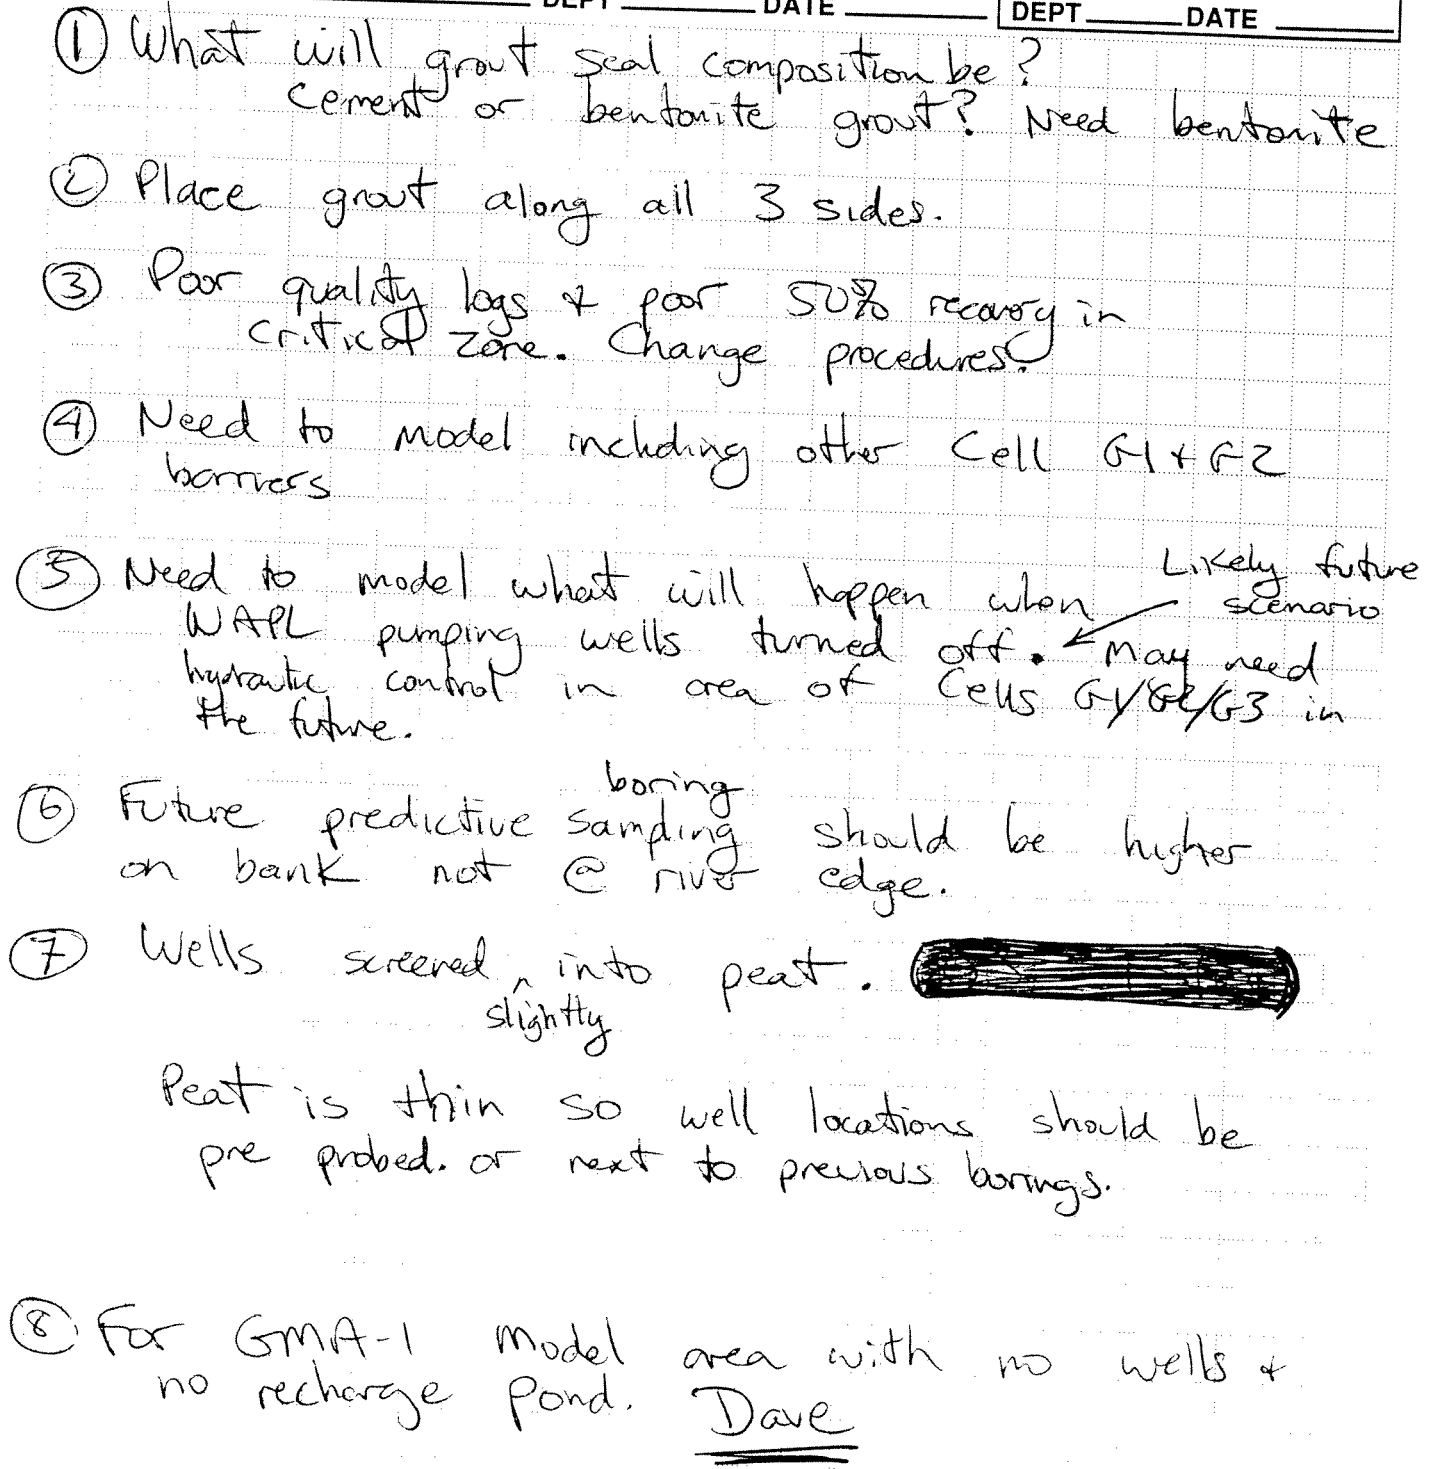 DEPT DATE DEPT DATE
① What will grout seal composition be?
cement or bentonite grout? Need bentonite
② Place grout along all 3 sides.
③ Poor quality logs & poor 50% recovery in
critical zone. Change procedures.
④ Need to model including other Cell G1 + G2
barriers
⑤ Need to model what will happen when
Likely future
scenario
NAPL pumping wells turned off. ← May need
hydraulic control in area of Cells G1/G2/G3 in
the future.
boring
⑥ Future predictive sampling should be higher
on bank not @ river edge.
⑦ Wells screened ^ into peat.
slightly
Peat is thin so well locations should be
pre probed. or next to previous borings.
⑧ For GMA-1 model area with no wells &
no recharge pond. Dave